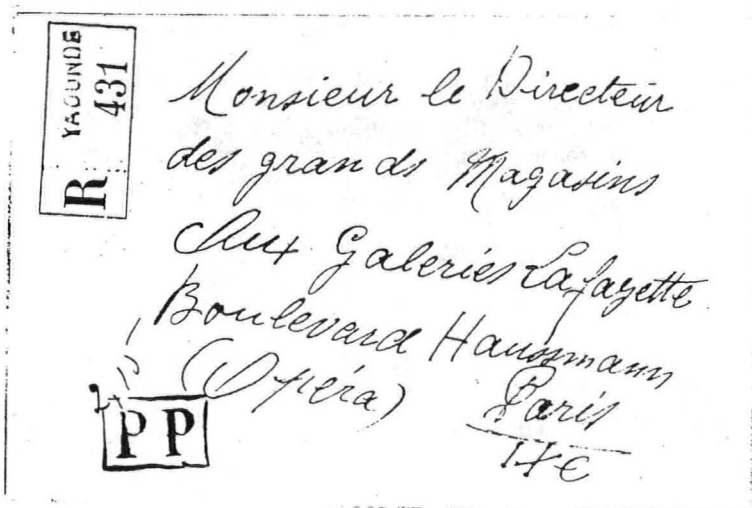 R YAOUNDE 431
Monsieur le Directeur
des grands Magasins
Aux Galeries Lafayette
Boulevard Haussmann
(Opéra) Paris
PP